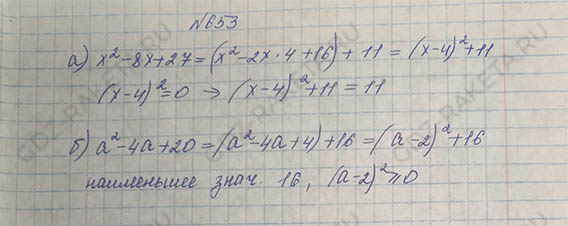 №653
а) x²-8x+27=(x²-2x·4+16)+11=(x-4)²+11
(x-4)²=0 → (x-4)²+11=11
б) a²-4a+20=(a²-4a+4)+16=(a-2)²+16
наименьшее знач. 16, (a-2)²≥0
GDZ-RAKETA.RU